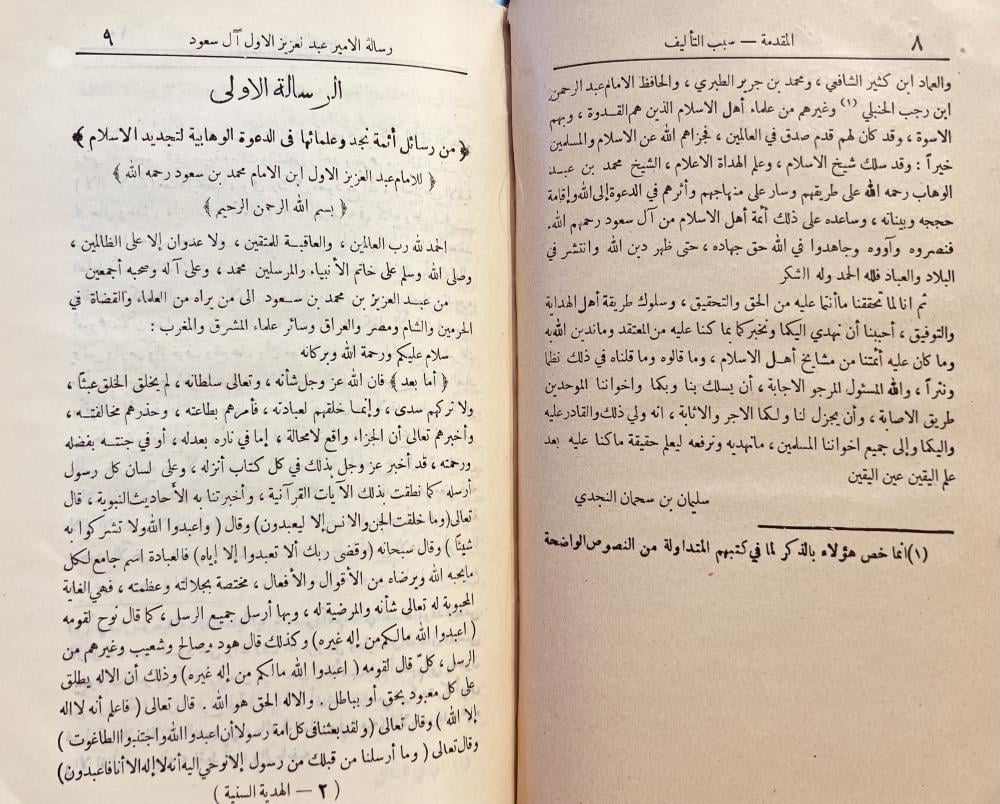 ٨ المقدمة — سبب التأليف
والعماد ابن كثير الشافعي ، ومحمد بن جرير الطبري ، والحافظ الامام عبد الرحمن
ابن رجب الحنبلي (١) وغيرهم من علماء أهل الاسلام الذين هم القدوة ، وبهم
الاسوة ، وقد كان لهم قدم صدق في العالمين ، فجزاهم الله عن الاسلام والمسلمين
خيراً : وقد سلك شيخ الاسلام ، وعلم الهداة الاعلام ، الشيخ محمد بن عبد
الوهاب رحمه الله على طريقهم وسار على منهاجهم وأثرهم في الدعوة إلى الله وإقامة
حججه وبيناته ، وساعده على ذلك أئمة أهل الاسلام من آل سعود رحمهم الله .
فنصروه وآووه وجاهدوا في الله حق جهاده ، حتى ظهر دين الله وانتشر في
البلاد والعباد فلله الحمد وله الشكر
ثم انا لما تحققنا ما أنتما عليه من الحق والتحقيق ، وسلوك طريقة أهل الهداية
والتوفيق ، أحببنا أن نهدي اليكما ونخبركما بما كنا عليه من المعتقد وما ندين الله به
وما كان عليه أئمتنا من مشايخ أهل الاسلام ، وما قالوه وما قلناه في ذلك نظما
ونثراً ، والله المسئول المرجو الاجابة ، أن يسلك بنا وبكما واخواننا الموحدين
طريق الاصابة ، وأن يجزل لنا ولكما الاجر والاثابة ، انه ولي ذلك والقادر عليه
واليكما وإلى جميع اخواننا المسلمين ، ما نهديه ونرفعه ليعلم حقيقة ما كنا عليه بعد
علم اليقين عين اليقين
سليمان بن سحمان النجدي
(١) انما خص هؤلاء بالذكر لما في كتبهم المتداولة من النصوص الواضحة
رسالة الامير عبد لعزيز الاول آل سعود ٩
الرسالة الاولى
﴿ من رسائل أئمة نجد وعلمائها في الدعوة الوهابية لتجديد الاسلام ﴾
﴿ للامام عبد العزيز الاول ابن الامام محمد بن سعود رحمه الله ﴾
﴿ بسم الله الرحمن الرحيم ﴾
الحمد لله رب العالمين ، والعاقبة للمتقين ، ولا عدوان إلا على الظالمين ،
وصلى الله وسلم على خاتم الأنبياء والمرسلين محمد ، وعلى آله وصحبه أجمعين
من عبد العزيز بن محمد بن سعود الى من يراه من العلماء والقضاة في
الحرمين والشام ومصر والعراق وسائر علماء المشرق والمغرب :
سلام عليكم ورحمة الله وبركاته
﴿ أما بعد ﴾ فان الله عز وجل شأنه ، وتعالى سلطانه ، لم يخلق الخلق عبثاً ،
ولا تركهم سدى ، وإنما خلقهم لعبادته ، فأمرهم بطاعته ، وحذرهم مخالفته ،
وأخبرهم تعالى أن الجزاء واقع لا محالة ، إما في ناره بعدله ، أو في جنته بفضله
ورحمته ، قد أخبر عز وجل بذلك في كل كتاب أنزله ، وعلى لسان كل رسول
أرسله كما نطقت بذلك الآيات القرآنية ، وأخبرتنا به الأحاديث النبوية ، قال
تعالى (وما خلقت الجن والانس إلا ليعبدون) وقال ( واعبدوا الله ولا تشركوا به
شيئاً ) وقال سبحانه (وقضى ربك ألا تعبدوا إلا إياه) فالعبادة اسم جامع لكل
ما يحبه الله ويرضاه من الأقوال والأفعال ، مختصة بجلالته وعظمته ، فهي الغاية
المحبوبة له تعالى شأنه والمرضية له ، وبها أرسل جميع الرسل ، كما قال نوح لقومه
( اعبدوا الله ما لكم من إله غيره) وكذلك قال هود وصالح وشعيب وغيرهم من
الرسل ، كلّ قال لقومه ( اعبدوا الله ما لكم من إله غيره) وذلك أن الاله يطلق
على كل معبود بحق أو بباطل . والاله الحق هو الله . قال تعالى ( فاعلم أنه لا اله
إلا الله ) وقال تعالى ( ولقد بعثنا في كل امة رسولا أن اعبدوا الله واجتنبوا الطاغوت )
وقال تعالى ( وما أرسلنا من قبلك من رسول إلا نوحي اليه أنه لا إله الا أنا فاعبدون)
( ٢ — الهدية السنية )